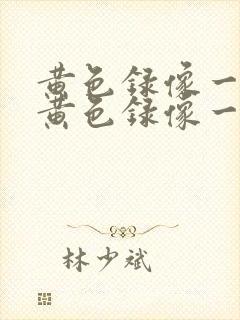 黄色录像一
黄色录像一
林少斌